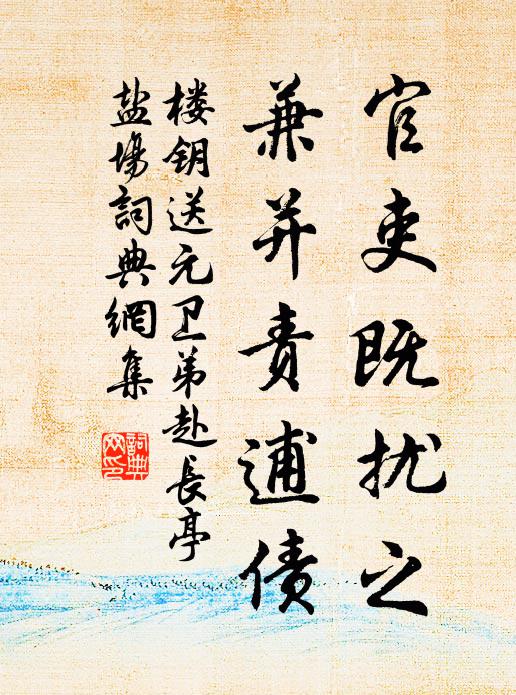 官吏既扰之
兼并责逋债
楼钥送元卫弟赴长亭
盐場詞典網集
詞典
网印